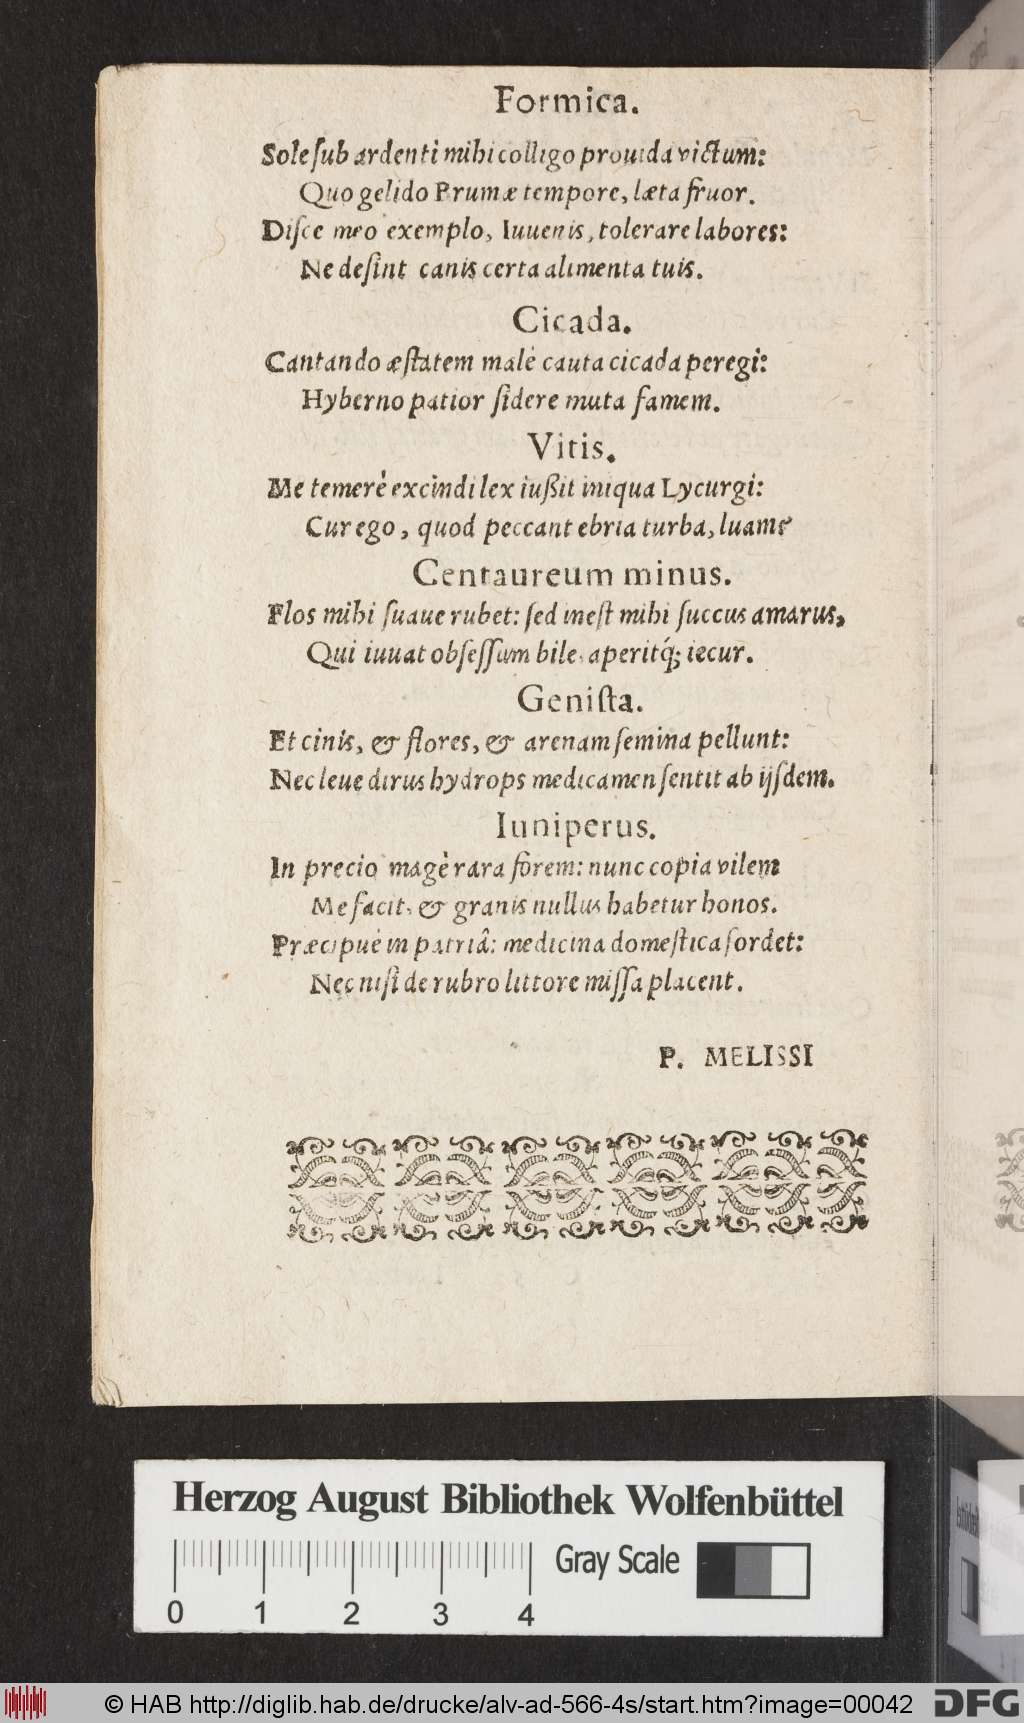 Formica.
Sole ſub ardenti mihi colligo prouida victum:
Quo gelido Brumæ tempore, læta fruor.
Diſce meo exemplo, Iuuenis, tolerare labores:
Ne deſint canis certa alimenta tuis.
Cicada.
Cantando æſtatem malè cauta cicada peregi:
Hyberno patior ſidere muta famem.
Vitis.
Me temerè excindi lex iußit iniqua Lycurgi:
Cur ego, quod peccant ebria turba, luam?
Centaureum minus.
Flos mihi ſuaue rubet: ſed ineſt mihi ſuccus amarus,
Qui iuuat obſeſſum bile, aperitq́; iecur.
Geniſta.
Et cinis, & flores, & arenam ſemina pellunt:
Nec leue dirus hydrops medicamen ſentit ab ijſdem.
Iuniperus.
In precio magè rara forem: nunc copia vilem
Me facit, & granis nullus habetur honos.
Præcipuè in patriâ: medicina domeſtica ſordet:
Nec niſi de rubro littore miſſa placent.
P. MELISSI
Herzog August Bibliothek Wolfenbüttel
Gray Scale
0 1 2 3 4
© HAB http://diglib.hab.de/drucke/alv-ad-566-4s/start.htm?image=00042
DFG